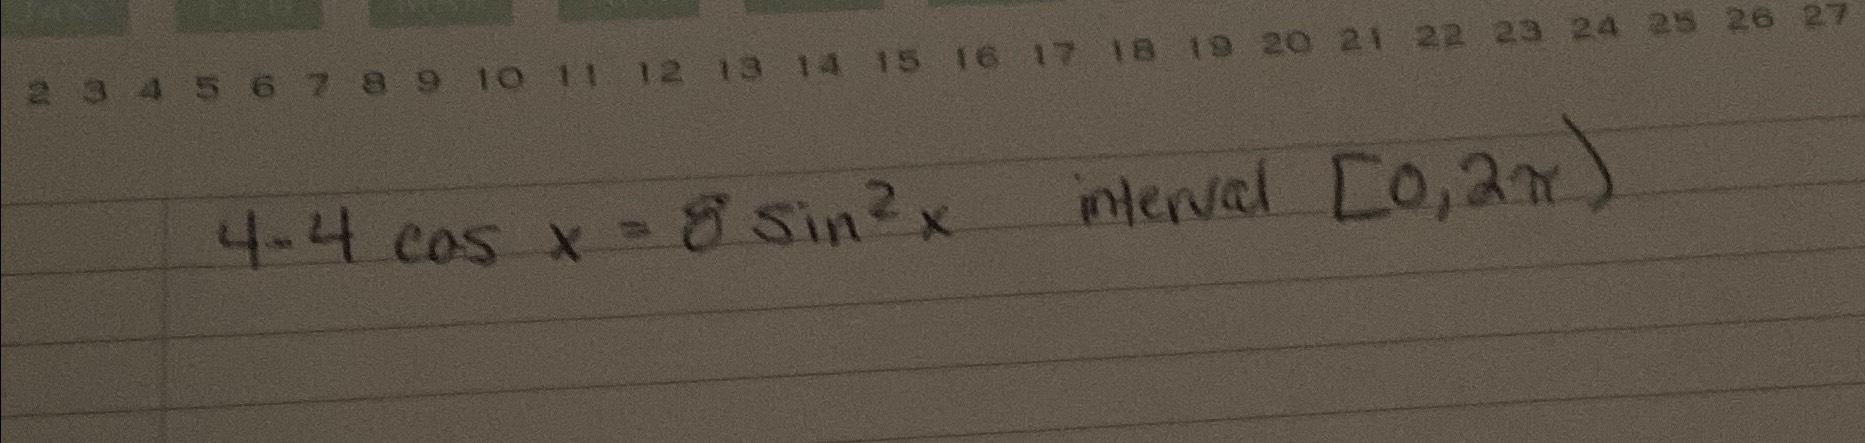 JAN FEB MAR
2 3 4 5 6 7 8 9 10 11 12 13 14 15 16 17 18 19 20 21 22 23 24 25 26 27
4-4 cos x = 8 sin²x interval [0,2π)